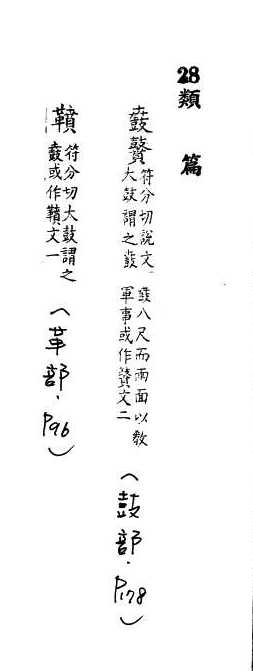 28類篇
鼖鼖賁 符分切説文大鼓謂之鼖鼖八尺而兩面以鼓軍事或作䪰文二（鼓部．P.178）
鞼 符分切大鼓謂之鼖或作鞼文一（革部．P.96）